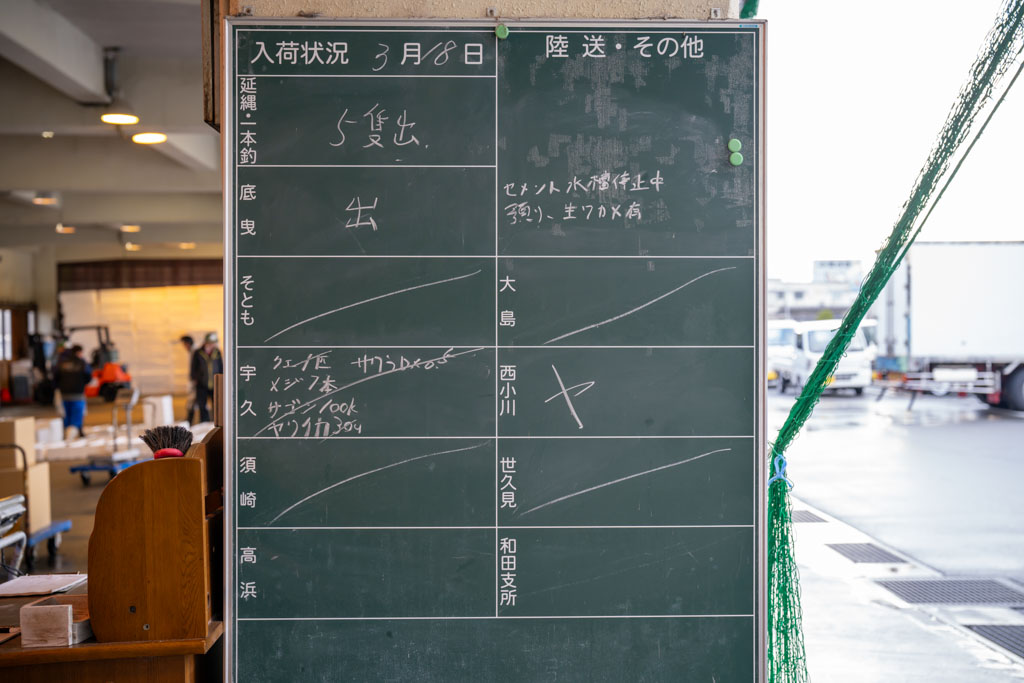 入荷状況 3月18日
陸送・その他
延縄・一本釣
5隻出.
底曳
出
セメント水槽停止中
預り、生ワカメ有
そとも
大島
宇久
メジ7本
サゴシ100k
ヤリイカ30c/s
西小川
ヤ
須崎
世久見
高浜
和田支所